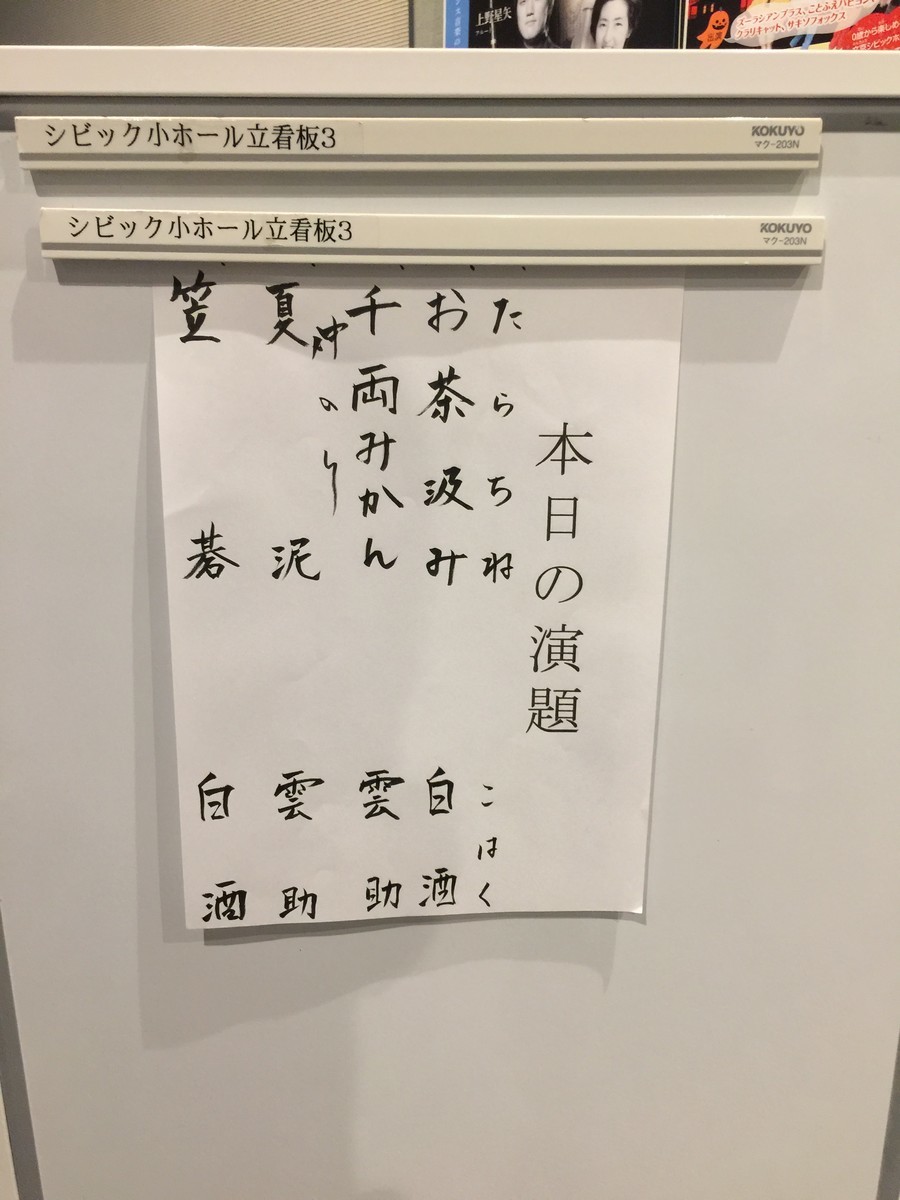 上野星矢
スーラシアンブラス、ことふえパピヨン、
クラリキャット、サキソフォックス
出演
0歳から楽しめ
シビック小ホール立看板3
KOKUYO
マク-203N
シビック小ホール立看板3
KOKUYO
マク-203N
本日の演題
たらちね こはく
お茶汲み 白酒
千両みかん 雲助
仲のり
夏泥 雲助
笠碁 白酒